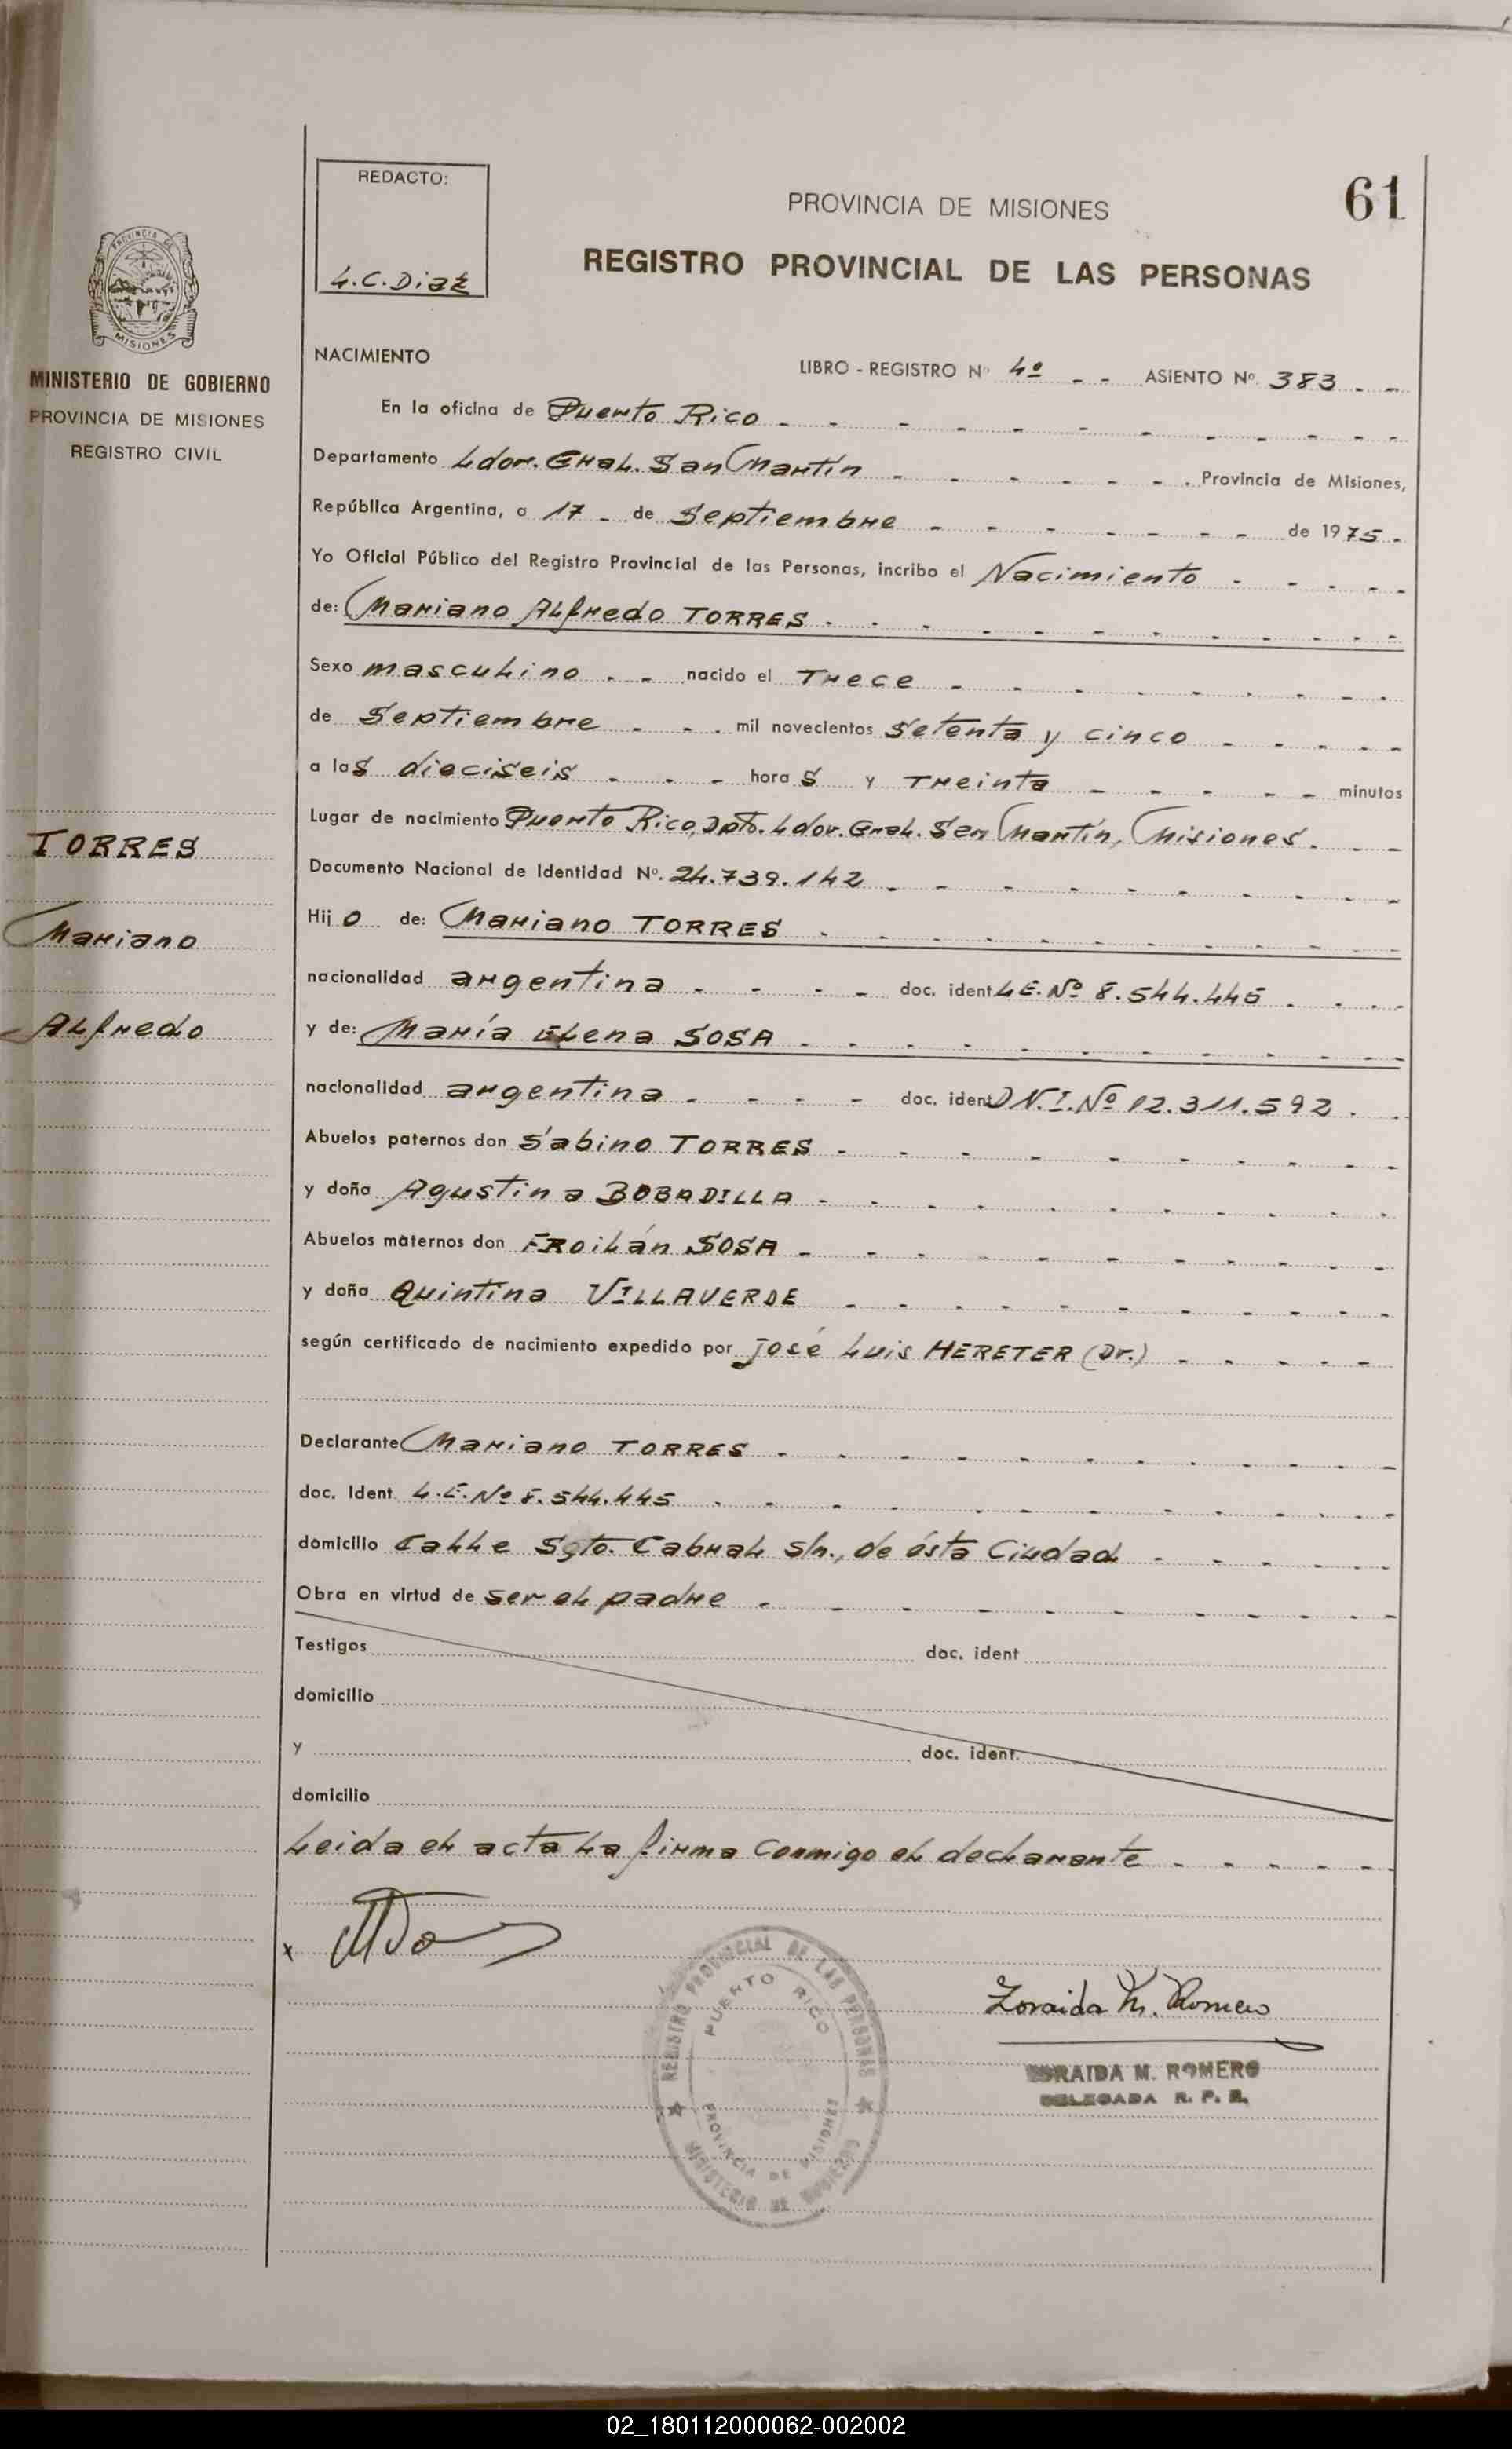 REDACTO:
L.C. Diaz
PROVINCIA DE MISIONES
61
REGISTRO PROVINCIAL DE LAS PERSONAS
PROVINCIA DE MISIONES
MINISTERIO DE GOBIERNO
PROVINCIA DE MISIONES
REGISTRO CIVIL
TORRES
Mariano
Alfredo
NACIMIENTO
LIBRO - REGISTRO Nº 4º - - ASIENTO Nº 383 - -
En la oficina de Puerto Rico
Departamento Ldor. Gral. San Martín Provincia de Misiones,
República Argentina, a 17 - de Septiembre de 1975.
Yo Oficial Público del Registro Provincial de las Personas, incribo el Nacimiento
de: Mariano Alfredo TORRES
Sexo masculino nacido el Trece
de Septiembre mil novecientos setenta y cinco
a las dieciseis horas y Treinta minutos
Lugar de nacimiento Puerto Rico, Dpto. Ldor. Gral. San Martín, Misiones.
Documento Nacional de Identidad Nº. 24.739.142
Hijo de: Mariano TORRES
nacionalidad argentina doc. ident L.E. Nº 8.544.445
y de: María Elena SOSA
nacionalidad argentina doc. ident D.N.I. Nº 12.311.592
Abuelos paternos don Sabino TORRES
y doña Agustina BOBADILLA
Abuelos maternos don FRoilán SOSA
y doña Quintina VILLAVERDE
según certificado de nacimiento expedido por José Luis HERETER (Dr.)
Declarante Mariano TORRES
doc. Ident. L.E. Nº 8.544.445
domicilio Calle Sgto. Cabral s/n., de ésta Ciudad
Obra en virtud de ser el padre
Testigos doc. ident
domicilio
y doc. ident.
domicilio
Leida el acta la firma conmigo el declarante
x
REGISTRO PROVINCIAL DE LAS PERSONAS
PUERTO RICO
PROVINCIA DE MISIONES
MINISTERIO DE GOBIERNO
Zoraida M. Romero
ZORAIDA M. ROMERO
DELEGADA R. P. P.
02_180112000062-002002